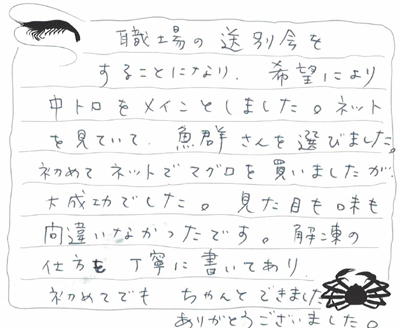 職場の送別会を
することになり、希望により
中トロをメインとしました。ネット
を見ていて、魚群さんを選びました。
初めてネットでマグロを買いましたが、
大成功でした。見た目も味も
間違いなかったです。解凍の
仕方も丁寧に書いてあり、
初めてでもちゃんとできました。
ありがとうございました。